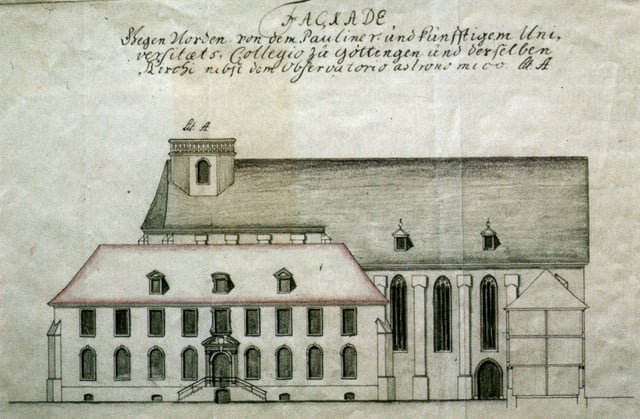 FACKADE
Gegen Norden von dem Pauliner und künfftigem Uni,
versitæts, Collegio zu Göttingen und derselben
Kirche nebst dem Observatorio astronomico. Lit. A
Lit. A